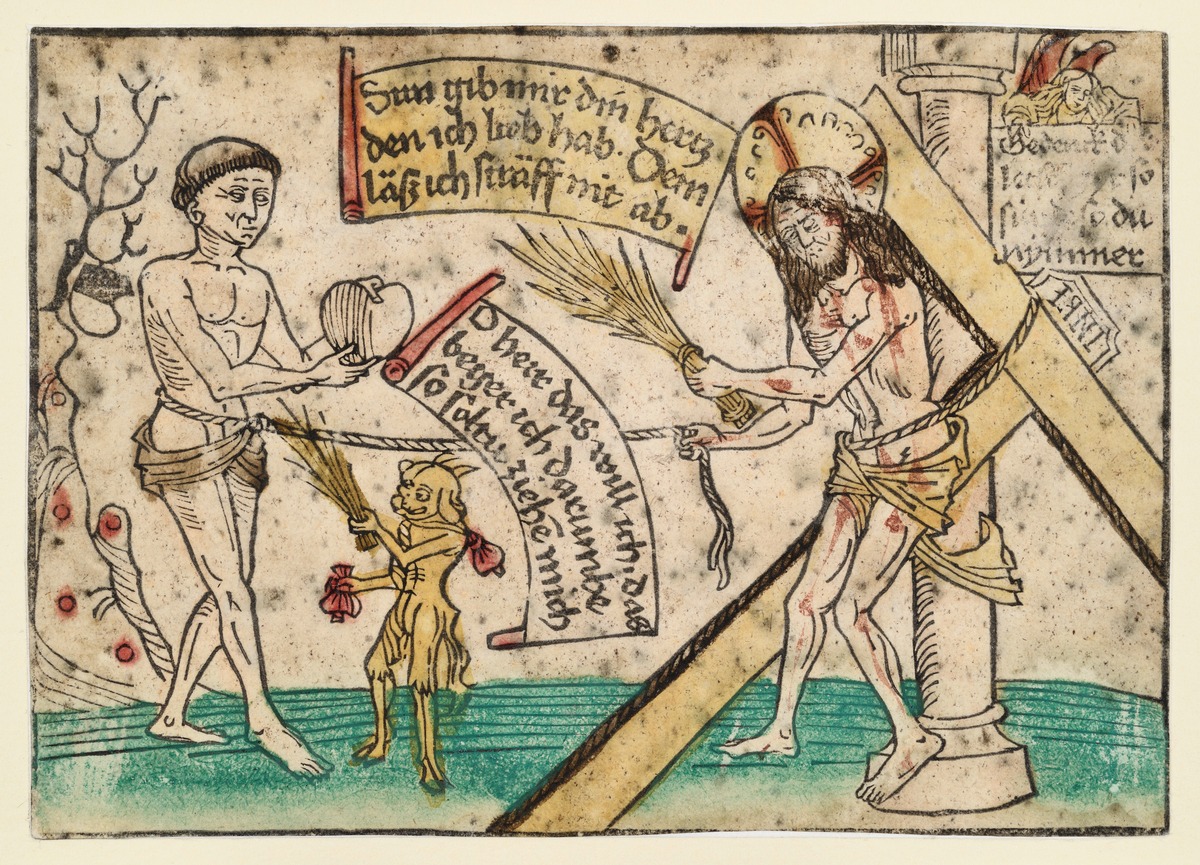 Sun gib mir din hertz
den ich lieb hab. Dem
läß ich sträff nit ab.
O herr das will ich das
beger ich darumbe
so soltu ziehē mich
so
du
nymmer